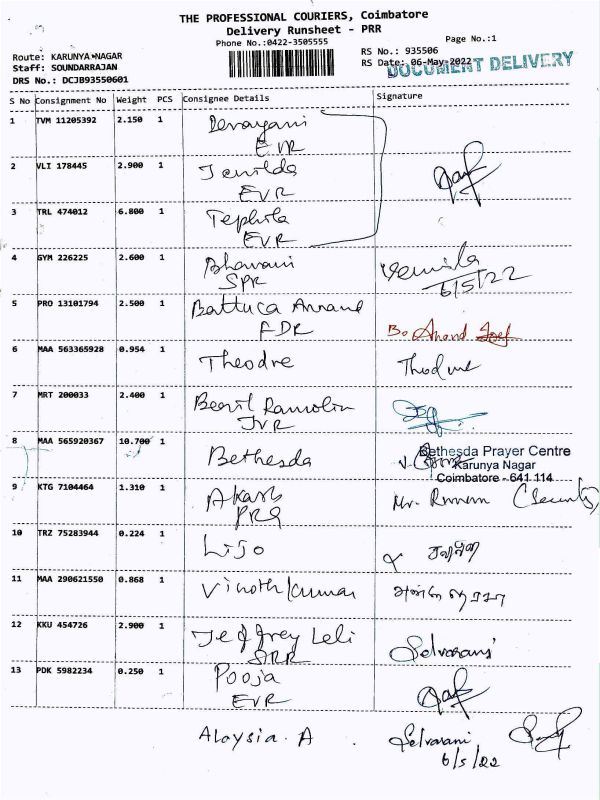 THE PROFESSIONAL COURIERS, Coimbatore
Delivery Runsheet - PRR
Phone No.:0422-3505555
Page No.:1
Route: KARUNYA NAGAR
RS No.: 935506
Staff: SOUNDARRAJAN
RS Date: 06-May-2022
DOCUMENT DELIVERY
DRS No.: DCJB93550601
S No Consignment No Weight PCS Consignee Details Signature
1 TVM 11205392 2.150 1 Devayani
EVR
2 VLI 178445 2.900 1 Jenilda
EVR
3 TRL 474012 6.800 1 Tephila
EVR
4 GYM 226225 2.600 1 Bhavani
SPR
6/5/22
5 PRO 13101794 2.500 1 Battuca Anand
FDR
Bo Anand
6 MAA 563365928 0.954 1 Theodre
7 MRT 200033 2.400 1
JVR
8 MAA 565920367 10.700 1 Bethesda
Bethesda Prayer Centre
Karunya Nagar
Coimbatore - 641 114
9 KTG 7104464 1.310 1 Akash
PRG
Mr.
10 TRZ 75283944 0.224 1 Lijo
11 MAA 290621550 0.868 1 Vinothkumar
12 KKU 454726 2.900 1 Jeffrey Leli
Selvarani
13 PDK 5982234 0.250 1 Pooja
EVR
Aloysia. A Selvarani
6/5/22